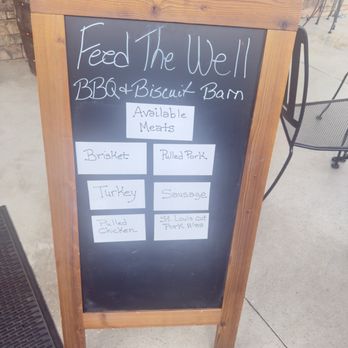 Feed The Well
BBQ & Biscuit Barn
Available
Meats
Brisket
Pulled Pork
Turkey
Sausage
Pulled
Chicken
St. Louis Cut
Pork Ribs